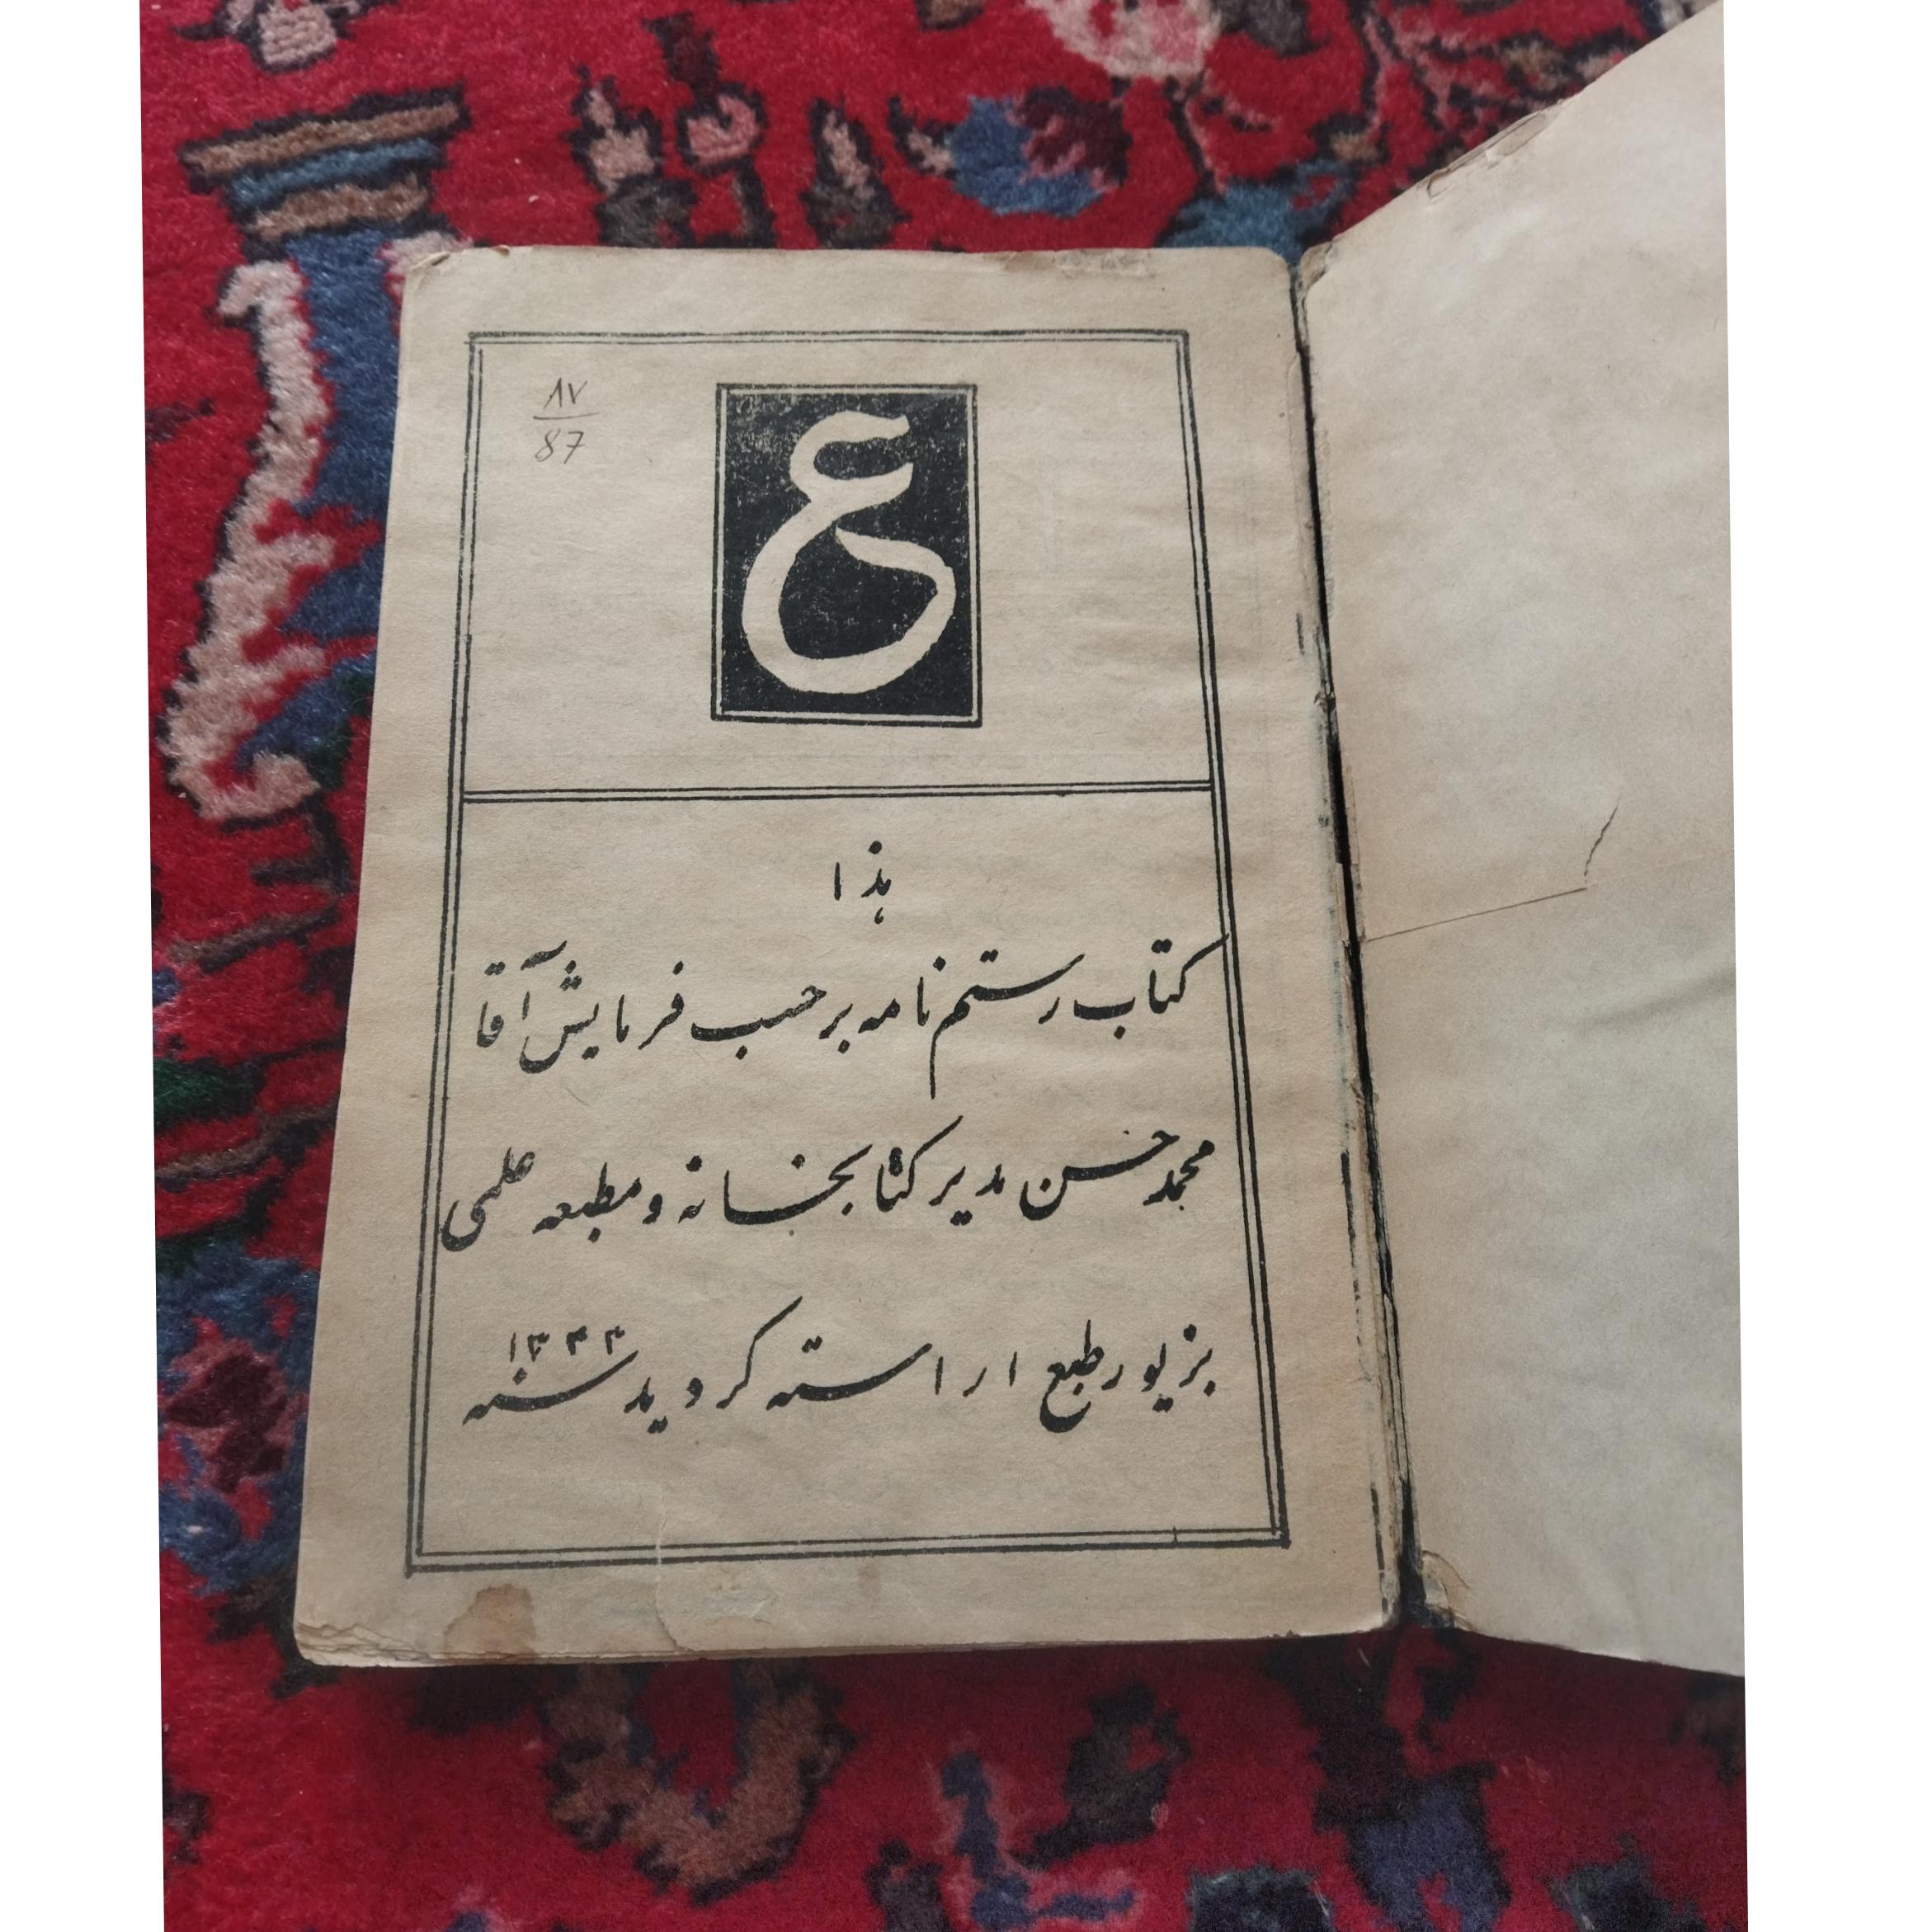 ۸۷
87
ع
هذا
کتاب رستم نامه بر حسب فرمایش آقا
محمد حسن مدیر کتابخانه و مطبعه علمی
بزیور طبع اراسته کردید سنه